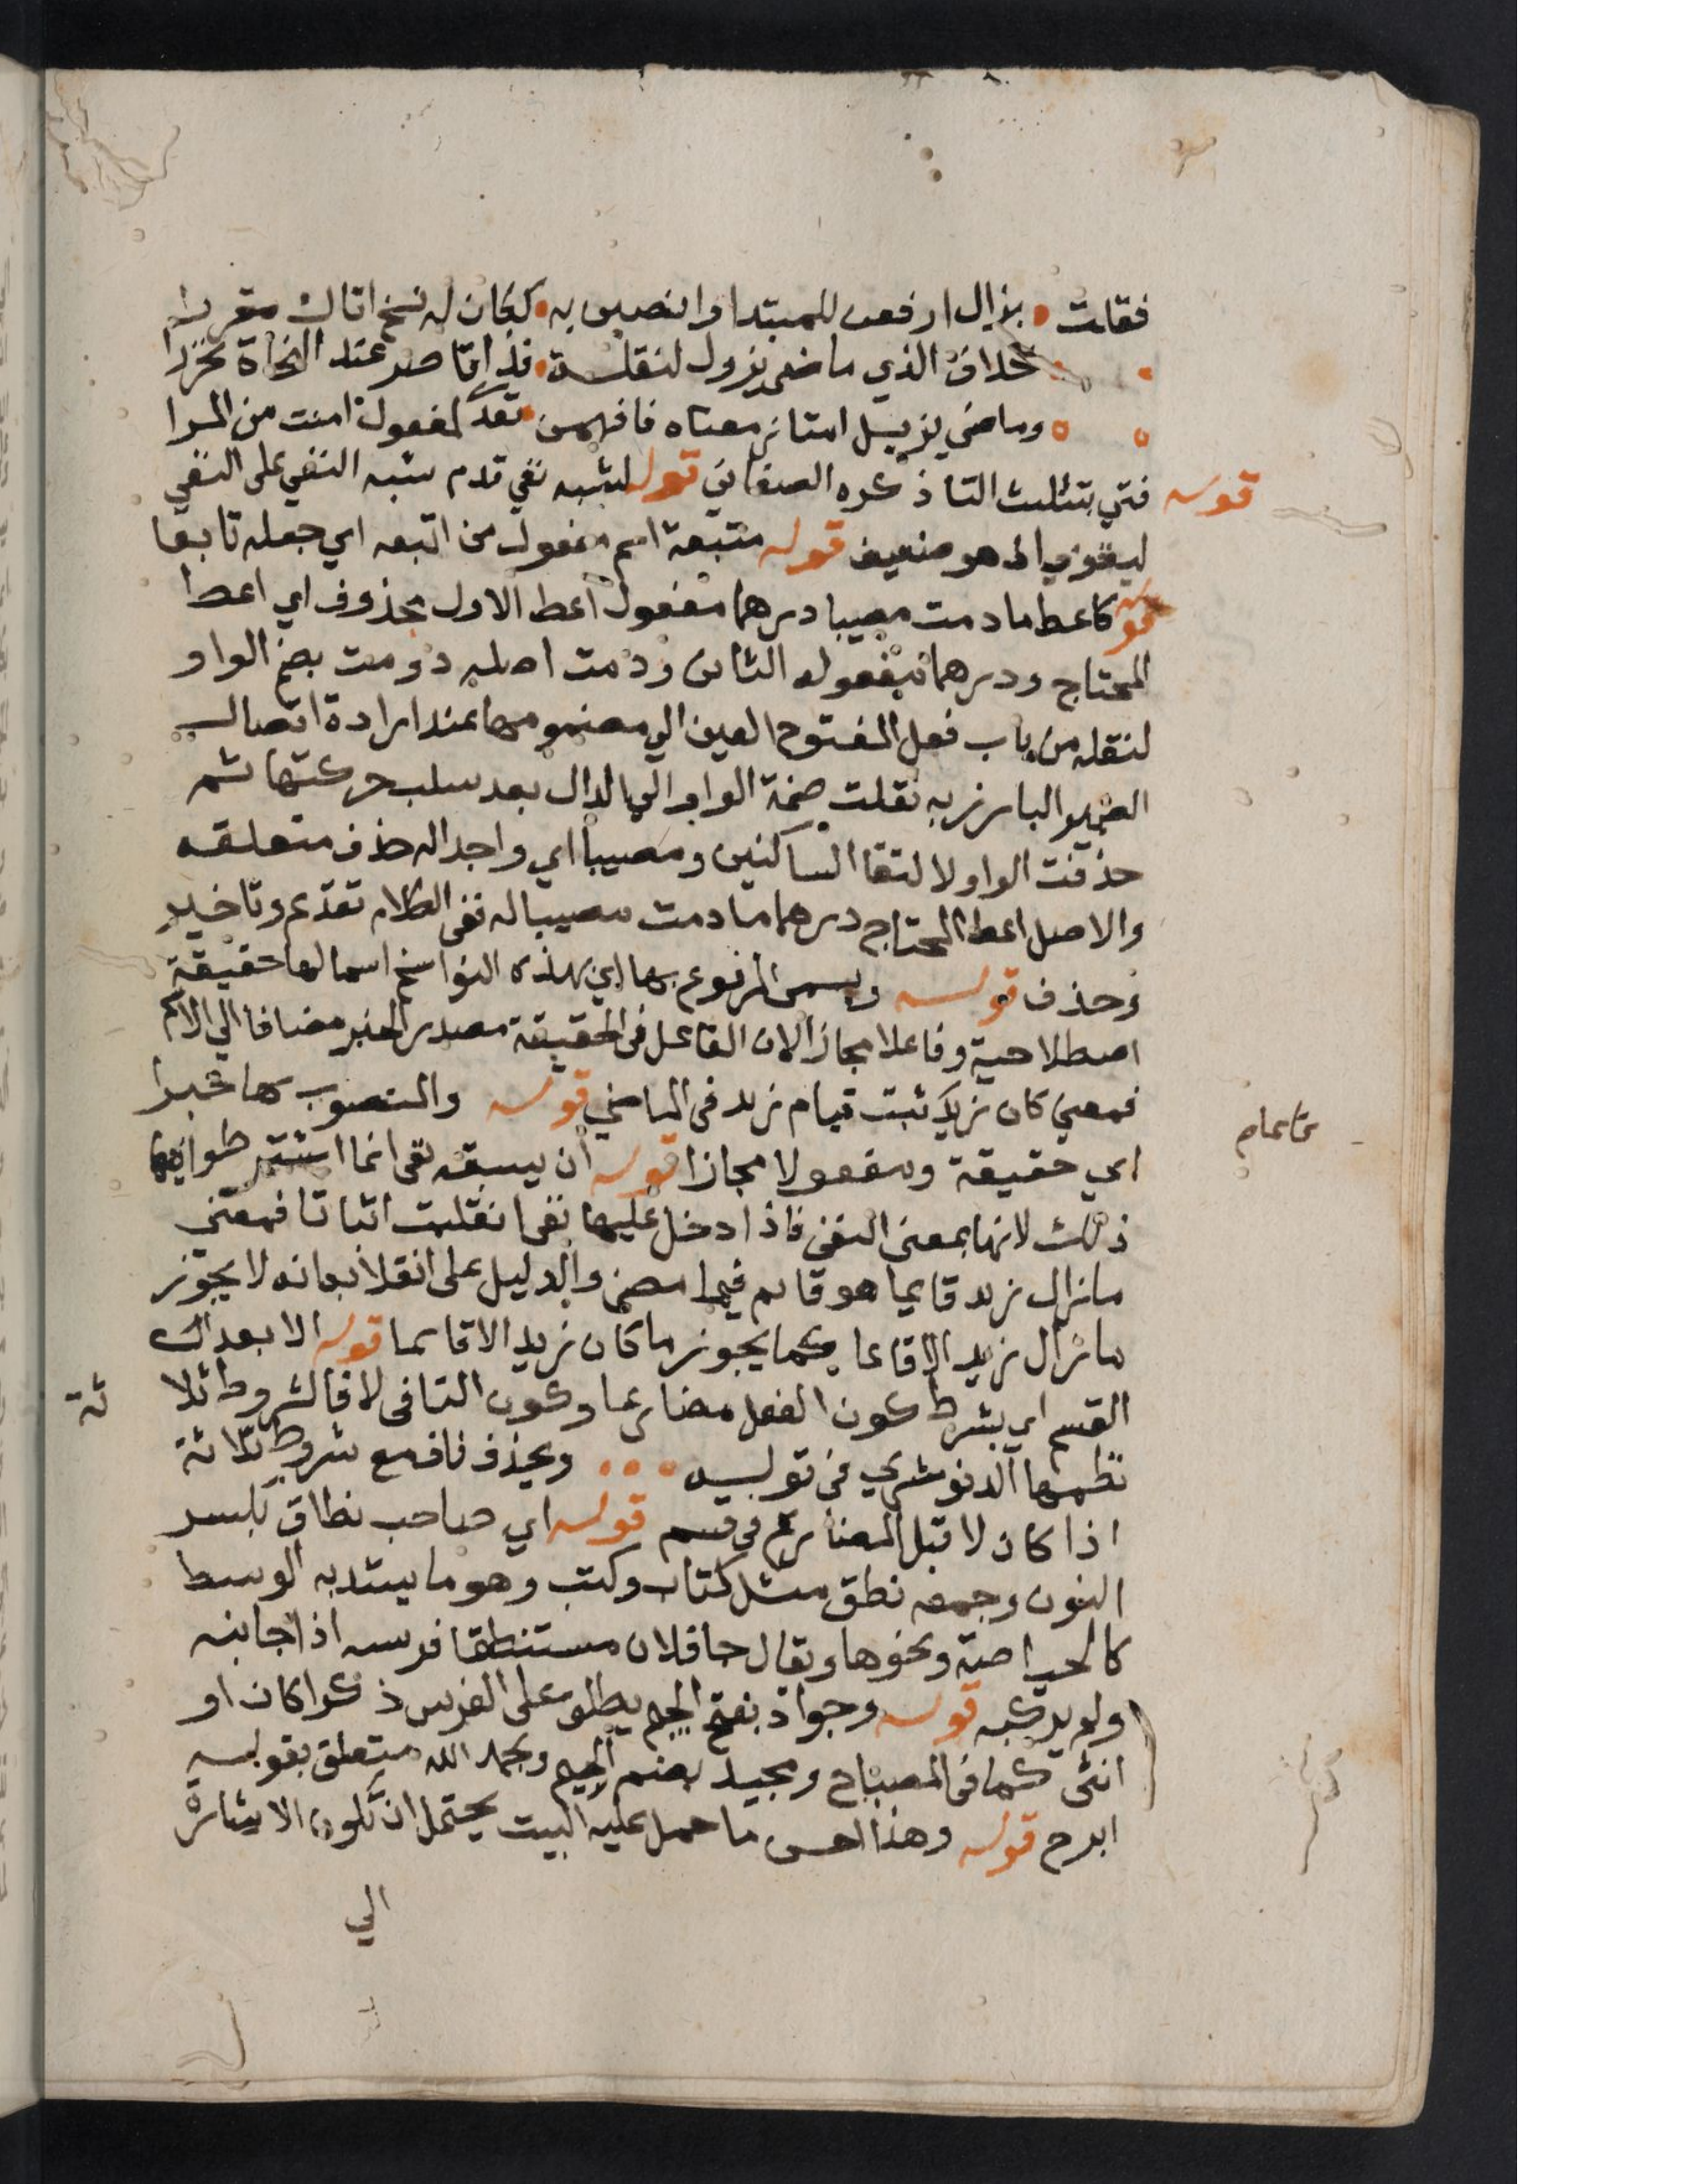 فقلت بزال ارفعن للمبتدا وانصبن به ككان له نسخ اتاك مقررا
بخلاف الذي ماضي يزول لنقلة فذا قاصر عند النحاة تحررا
وماضي يزيل امتاز معناه فافهمن تعد لمفعول امنت من المرا
قوله فتي بتثليث التا ذكره الصغاني قوله لشبه نفي قدم شبه النفي على النفي
ليقوي اذ هو ضعيف قوله متبعة اسم مفعول من اتبعه اي جعله تابعا
كاعط ما دمت مصيبا درهما مفعول اعط الاول محذوف اي اعط
المحتاج ودرهما مفعوله الثاني ودمت اصله دومت بضم الواو
لنقله من باب فعل المفتوح العين الي مضمومها عند ارادة اتصال
الضمير البارز به نقلت ضمة الواو الي الدال بعد سلب حركتها ثم
حذفت الواو لالتقا الساكنين ومصيبا اي واجدا له حذف متعلقه
والاصل اعط المحتاج درهما ما دمت مصيبا له ففي الكلام تقديم وتاخير
وحذف قوله ويسمى المرفوع بها اي بهذه النواسخ اسما لها حقيقة
اصطلاحية وفاعلا مجازا لان الفاعل في الحقيقة مصدر الخبر مضافا الي الاسم
فمعني كان زيد ثبت قيام زيد في الماضي قوله والمنصوب بها خبرا
اي حقيقة ومفعولا مجازا قوله ان يسبقه نفي انما اشترطوا فيها
ذلك لانها بمعنى النفي فاذا دخل عليها نفي انقلبت اثباتا فمعنى
ما زال زيد قايما هو قايم فيما مضى والدليل على انقلابه انه لا يجوز
ما زال زيد الا قايما كما يجوز ما كان زيد الا قايما قوله الا بعد
القسم اي بشرط كون الفعل مضارعا وكون النافي لا فالشروط ثلا
ثة
نظمها الدنوشري في قوله ويحذف ناف مع شروط ثلاثة
اذا كان لا قبل المضارع في قسم قوله اي صاحب نطاق بكسر
النون وجمعه نطق مثل كتاب وكتب وهو ما يشد به الوسط
كالحياصة ونحوها ويقال جا فلان مستنطقا فرسه اذا جانبه
ولم يركبه قوله وجواد بفتح الجيم يطلق على الفرس ذكرا كان او
انثى كما في المصباح ومجيد بضم الجيم وبحمد الله متعلق بقوله
ابرح قوله وهذا احسن ما حمل عليه البيت يحتمل ان تكون الاشارة
الي